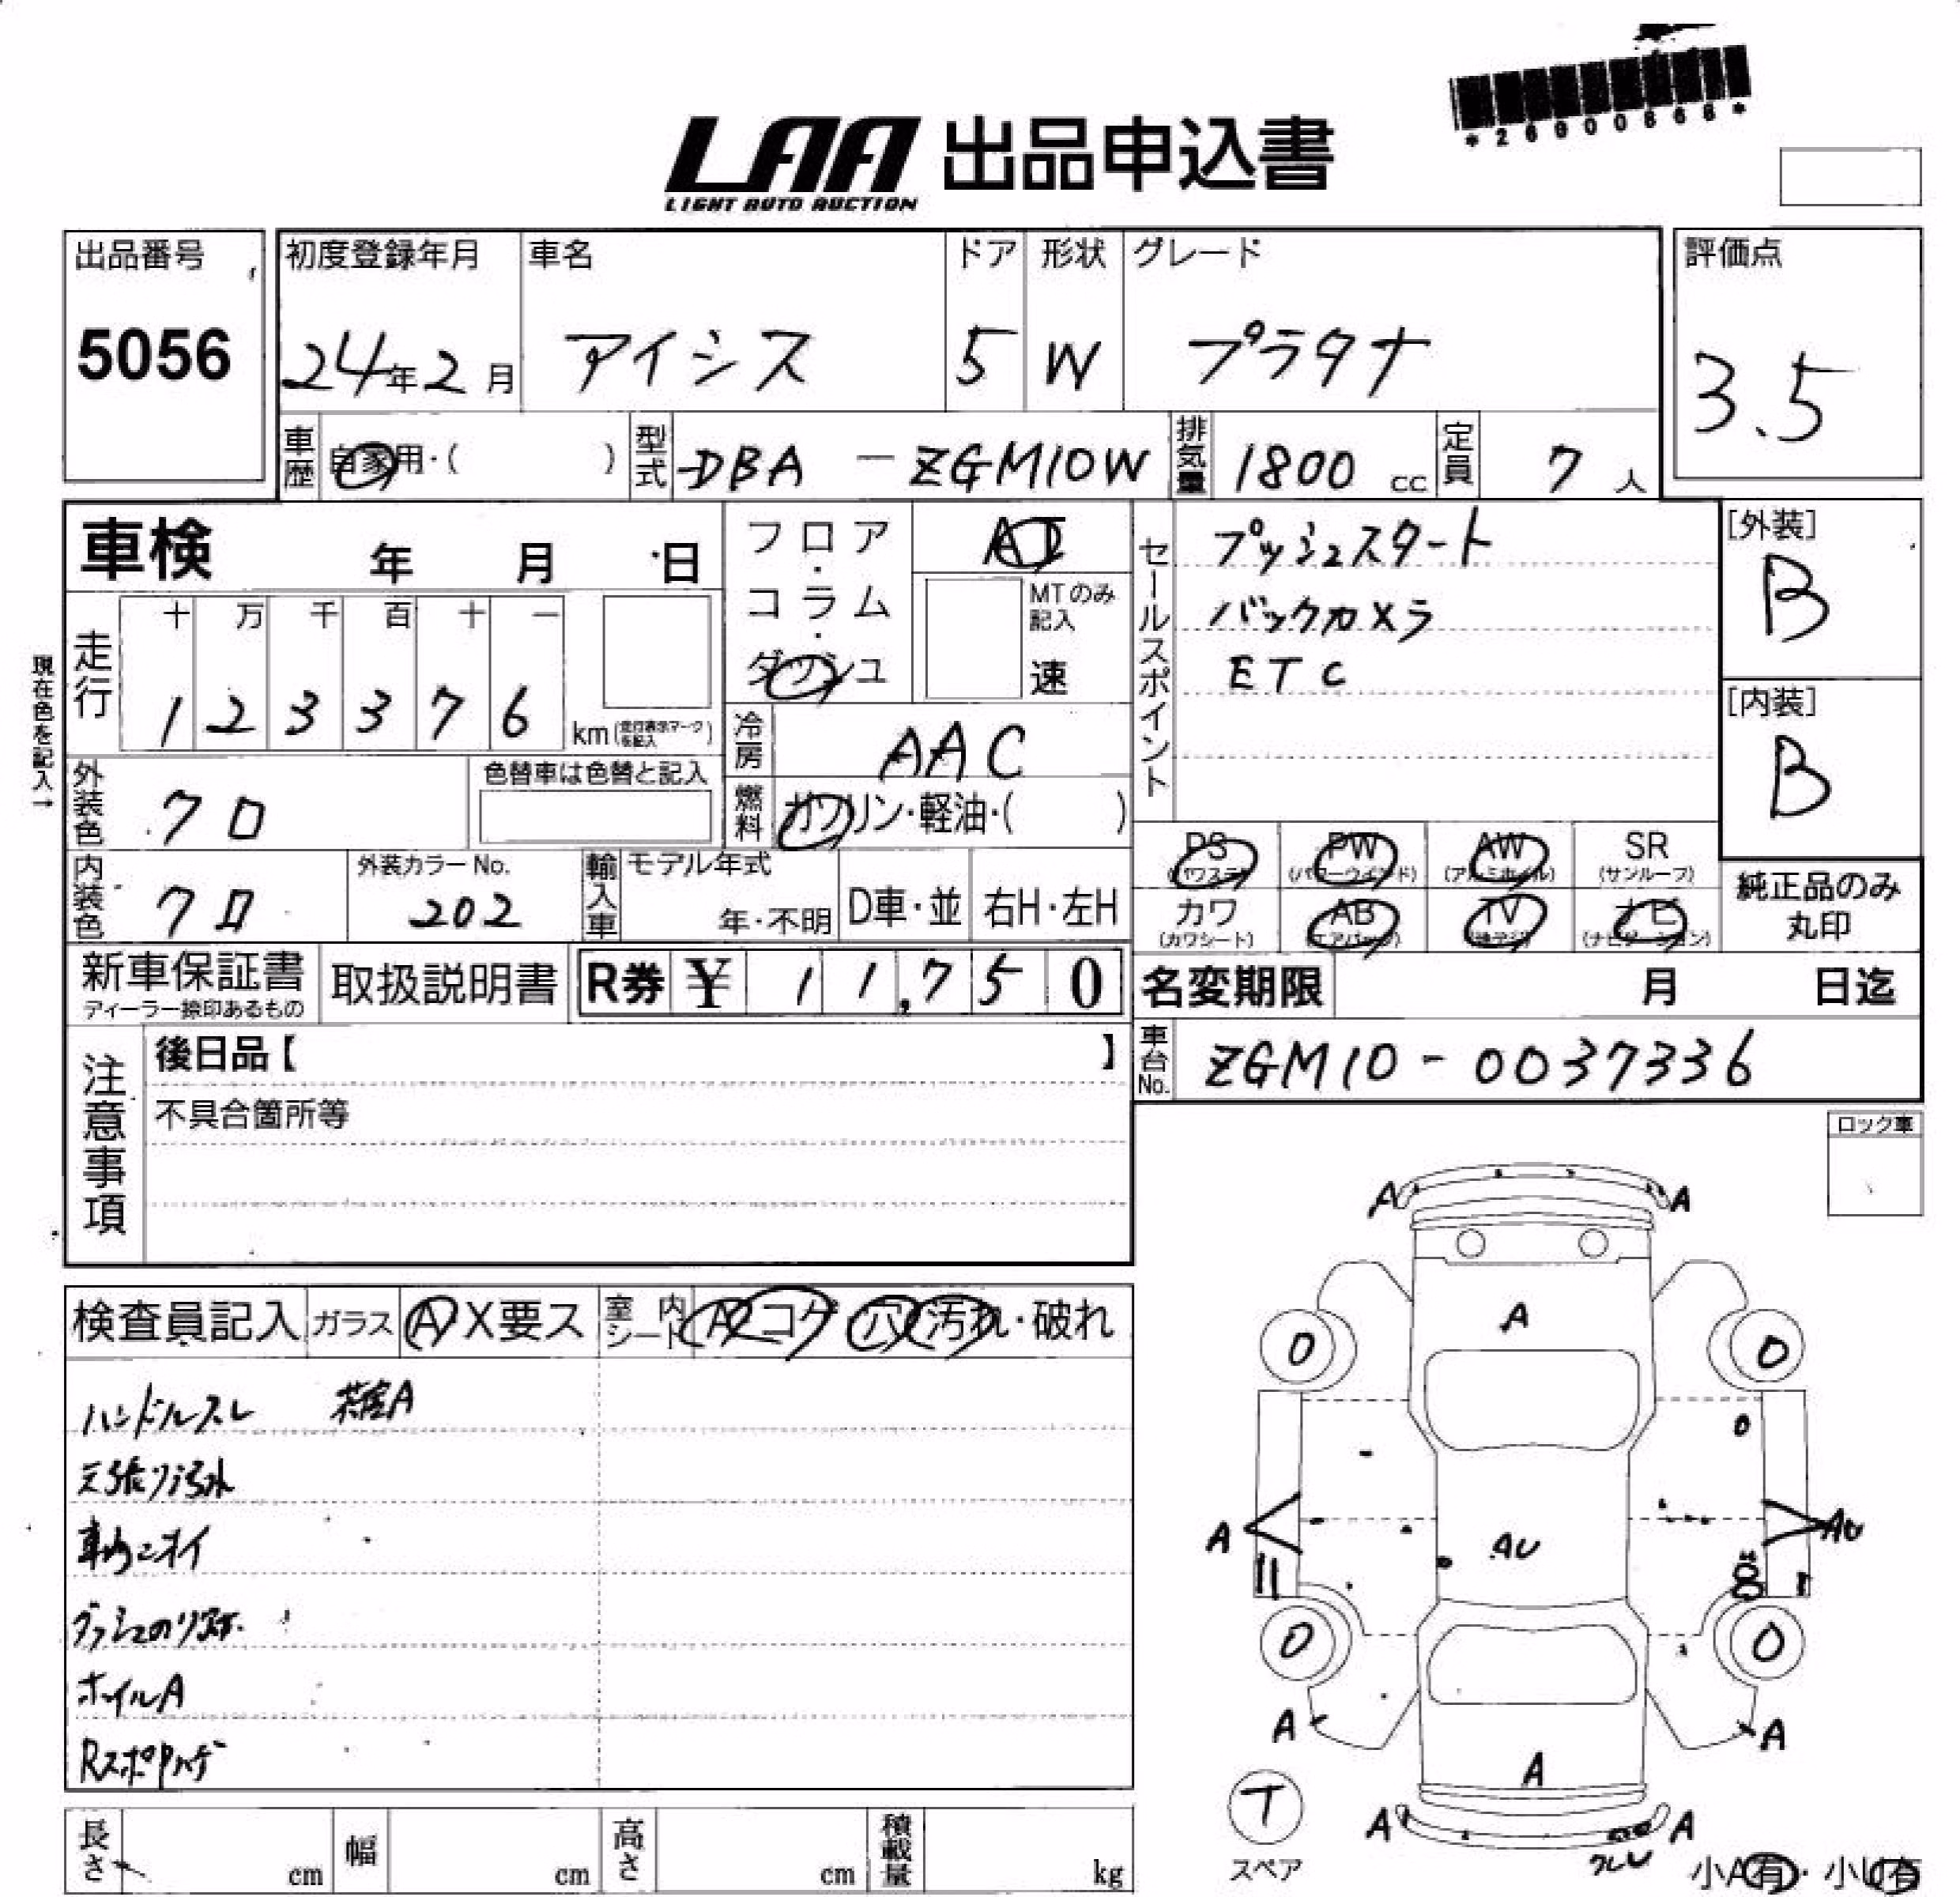 LAA 出品申込書
LIGHT AUTO AUCTION
出品番号 初度登録年月 車名 ドア 形状 グレード 評価点
5056 24年2月 アイシス 5 W プラタナ 3.5
車歴 自家用・( ) 型式 DBA-ZGM10W 排気量 1800 cc 定員 7 人
車検 年 月 日 フロア・コラム・ダッシュ AT
MTのみ記入 速
セールスポイント プッシュスタート
バックカメラ
ETC
[外装] B
[内装] B
現在色を記入→
走行 十 万 千 百 十 一
1 2 3 3 7 6 km (走行表示マークを記入)
冷房 AAC
外装色 クロ 色替車は色替と記入
燃料 ガソリン・軽油・( )
内装色 クロ 外装カラーNo. 202
輸入車 モデル年式 年・不明 D車・並 右H・左H
PS (パワステ) PW (パワーウインド) AW (アルミホイル) SR (サンルーフ)
カワ (カワシート) AB (エアバッグ) TV (地デジ) ナビ (ナビゲーション)
純正品のみ丸印
新車保証書 取扱説明書 R券 ¥ 11,750
ディーラー捺印あるもの
名変期限 月 日迄
注意事項 後日品【 】
車台No. ZGM10-0037336
不具合箇所等
ロック車
検査員記入 ガラス A X要ス 室内シート A コゲ 穴 汚れ・破れ
ハンドルスレ 荷室A
天張り汚れ
車内ニオイ
ダッシュのリアト
ホイルA
RスポPハゲ
A A
A
0 0
A AU AU
0 0
A A
A
T
スペア
A A
クレU
小A有・小U有
長さ cm 幅 cm 高さ cm 積載量 kg